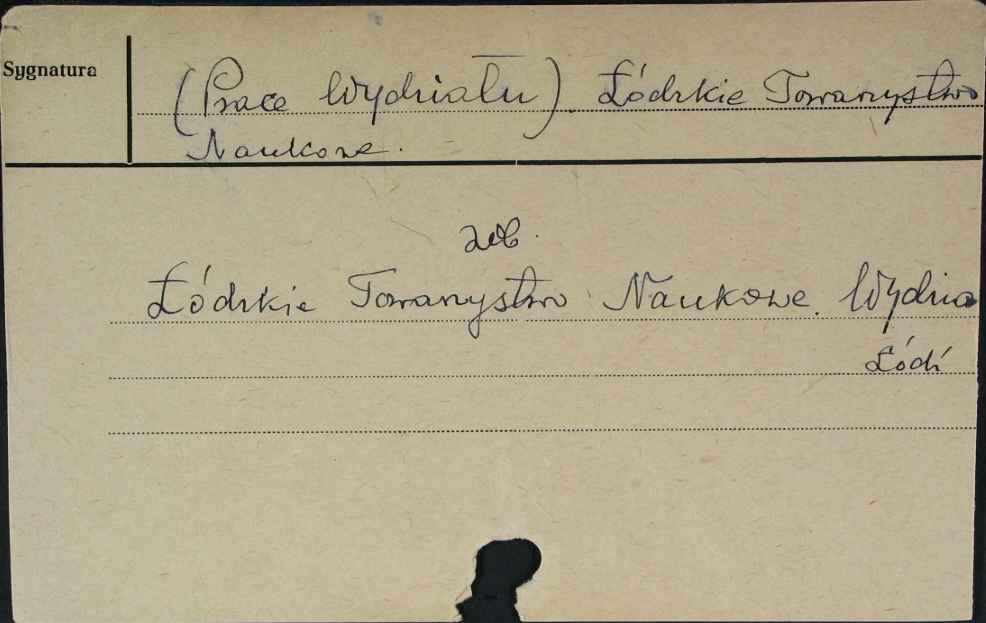 Sygnatura
(Prace Wydziału). Łódzkie Towarzystwo
Naukowe.
zob.
Łódzkie Towarzystwo Naukowe. Wydzia
Łódź